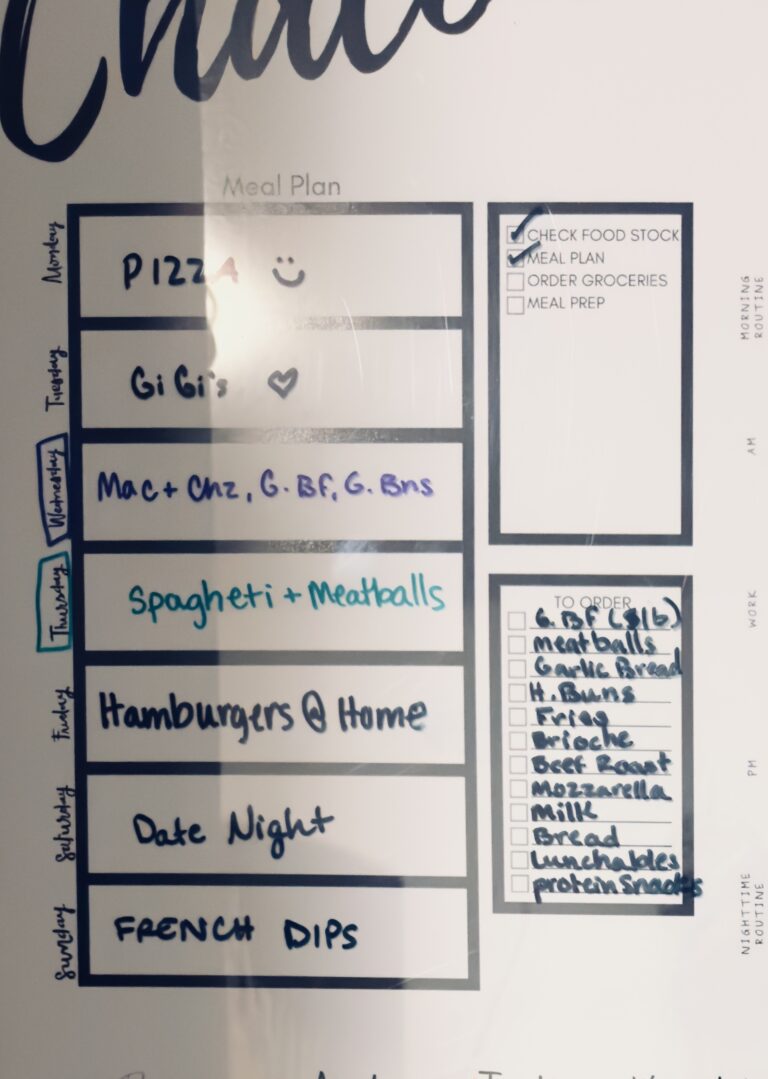 Meal Plan
Monday
PIZZA
Tuesday
Gi Gi's
Wednesday
Mac + Chz, G. BF, G. Bns
Thursday
Spagheti + Meatballs
Friday
Hamburgers @ Home
Saturday
Date Night
Sunday
FRENCH DIPS
CHECK FOOD STOCK
MEAL PLAN
ORDER GROCERIES
MEAL PREP
TO ORDER
G. BF
meatballs
Garlic Bread
H. Buns
Fries
Brioche
Beef Roast
Mozzarella
Milk
Bread
Lunchables
protein Snacks
MORNING
ROUTINE
AM
WORK
PM
NIGHTTIME
ROUTINE